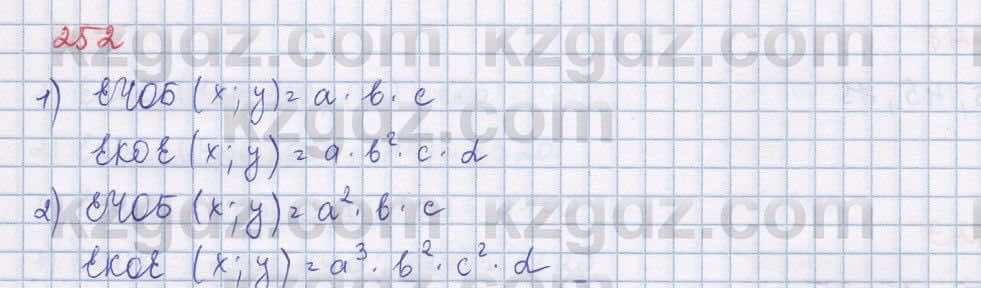 252
1) ЕҮОБ (x; y) = a · b · c
ЕКОЕ (x; y) = a · b² · c · d
2) ЕҮОБ (x; y) = a² · b · c
ЕКОЕ (x; y) = a³ · b² · c² · d
kzgdz.com kzgdz.com
kzgdz.com
kzgdz.com kzgdz.com